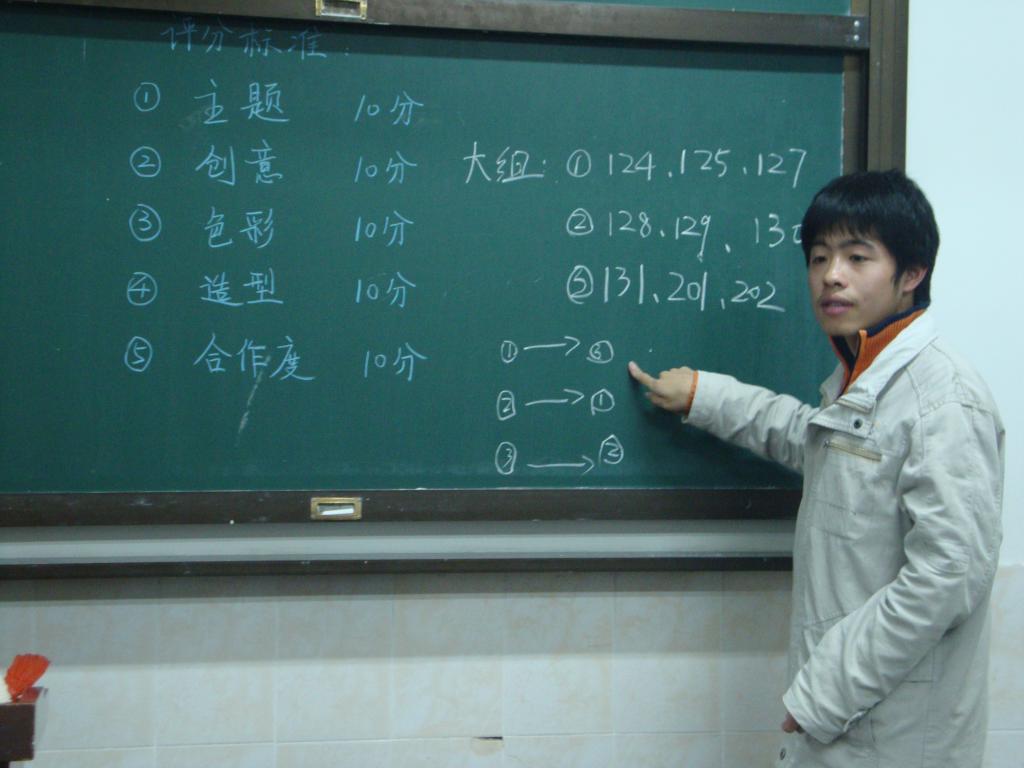 评分标准:
① 主题 10分
② 创意 10分
③ 色彩 10分
④ 造型 10分
⑤ 合作度 10分
大组: ① 124、125、127
② 128、129、130
③ 131、201、202
① → ③
② → ①
③ → ②